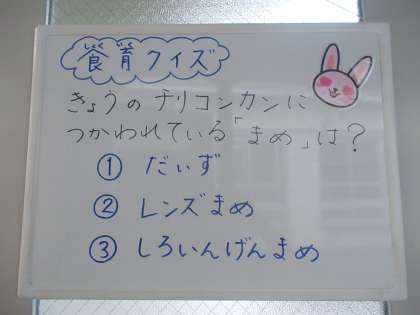 食育クイズ
きょうのチリコンカンに
つかわれている「まめ」は?
① だいず
② レンズまめ
③ しろいんげんまめ